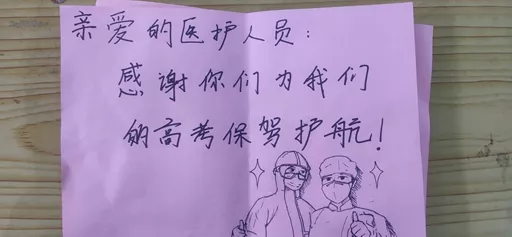 亲爱的医护人员：
感谢你们为我们
的高考保驾护航！